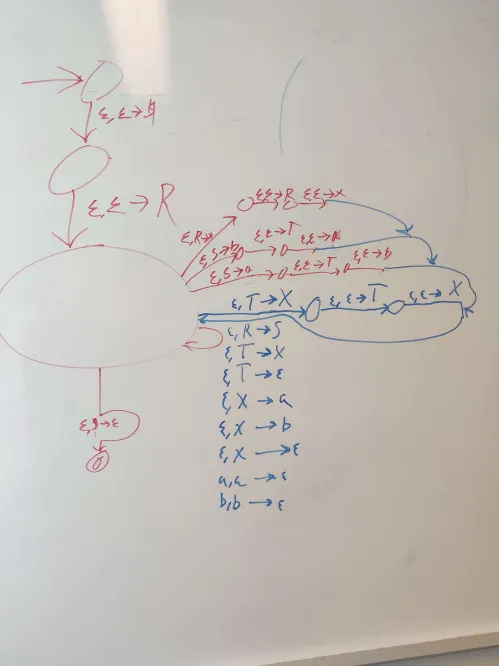 ε, ε → $
ε, ε → R
ε,ε→R ε,ε→X
ε,R→X
ε,S→b ε,ε→T ε,ε→a
ε,S→a ε,ε→T ε,ε→b
ε,T→X ε,ε→T ε,ε→X
ε,R→S
ε,T→X
ε,T→ε
ε,X→a
ε,X→b
ε,X→ε
a,a→ε
b,b→ε
ε,$→ε